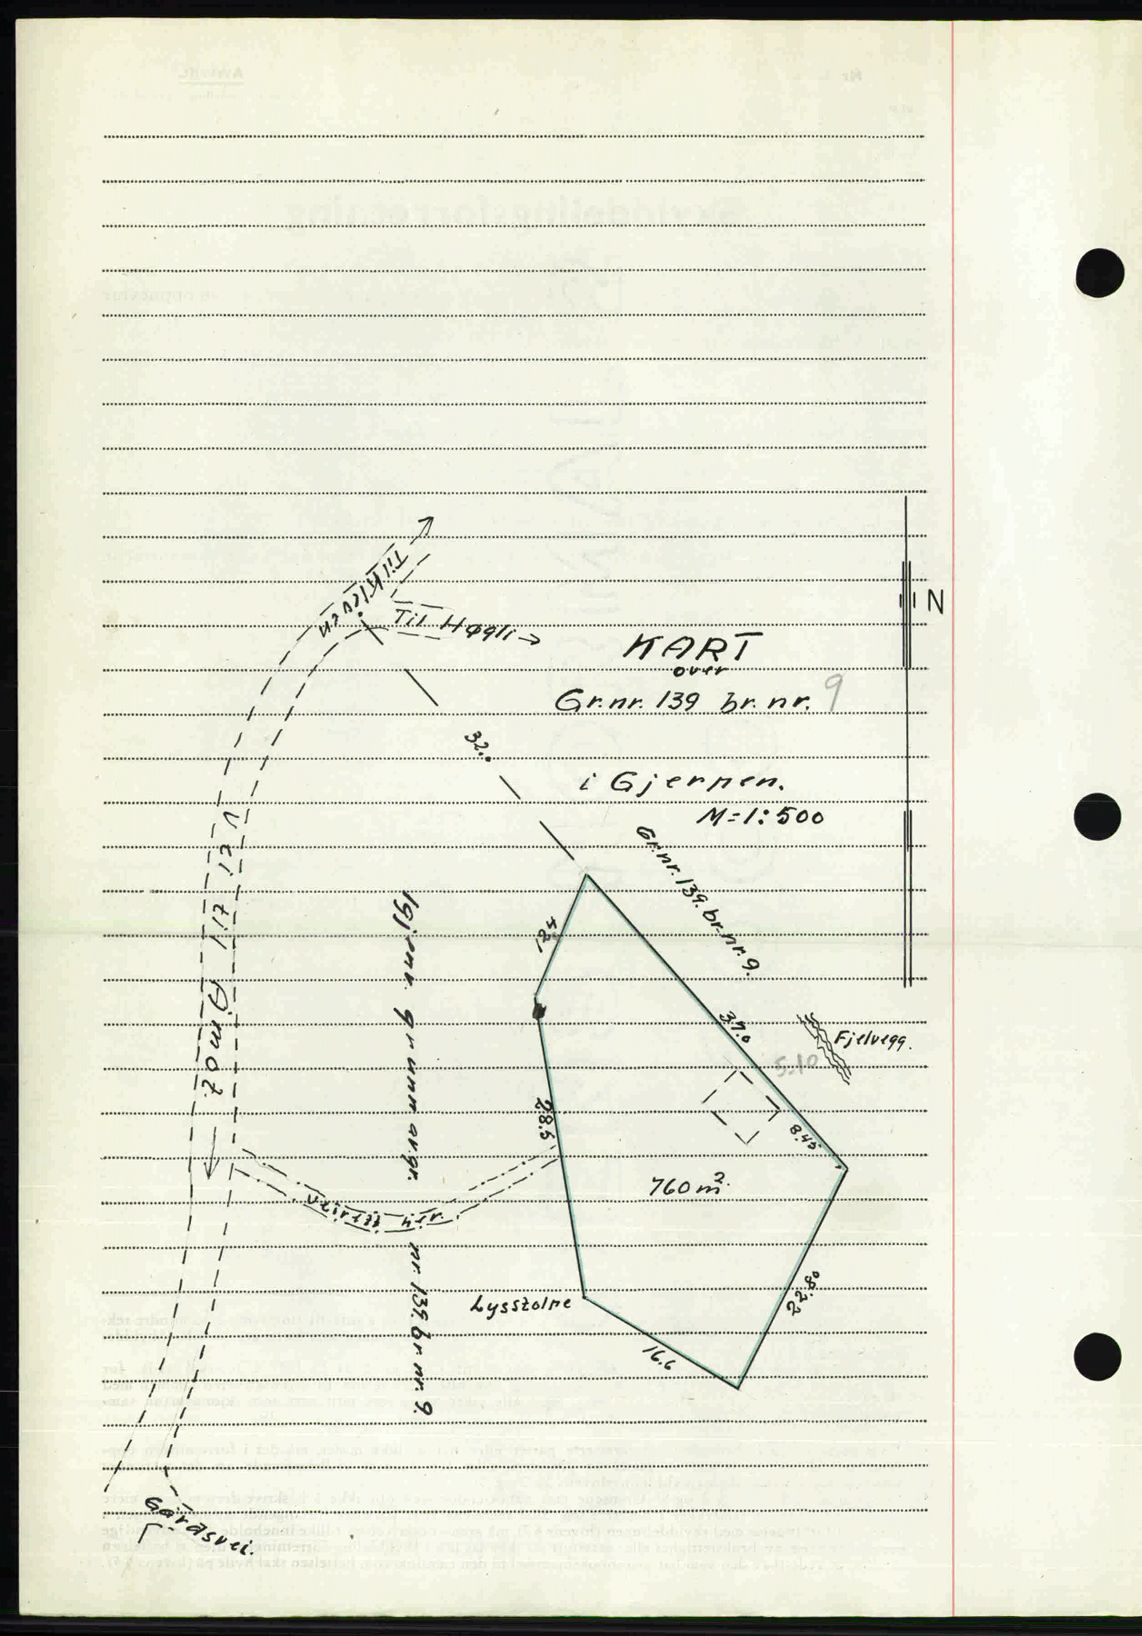 Til Kleven
Til Høgli
N
KART
over
Gr.nr. 139 br. nr. 9
32.0
i Gjerpen.
M=1:500
Gr.nr. 139. br.nr. 9.
Vei til Åmot
12.5
37.0
Fjelvegg.
5.10
28.5
8.45
760 m².
Veirett
nr. 139. br. nr. 9.
Lysstolpe
22.80
16.6
Gårdsvei.